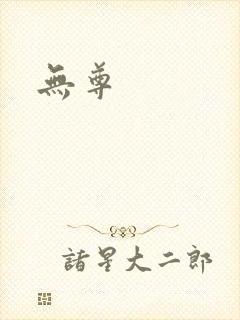 無尊
諸星大二郎